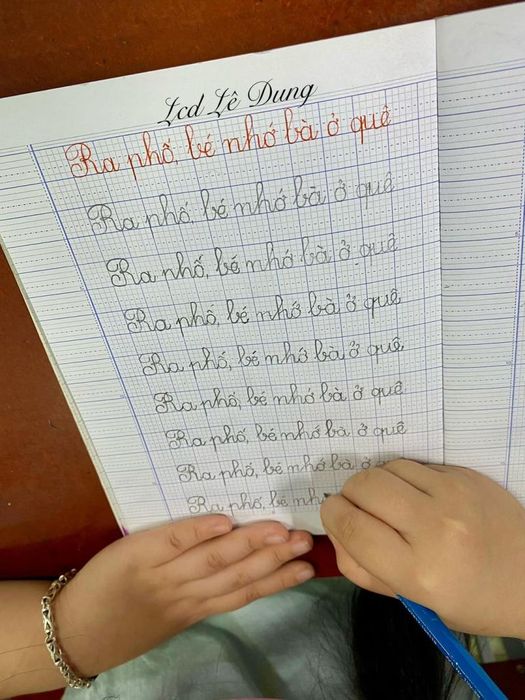 Lcd Lê Dung
Ra phố, bé nhớ bà ở quê
Ra phố, bé nhớ bà ở quê
Ra phố, bé nhớ bà ở quê
Ra phố, bé nhớ bà ở quê
Ra phố, bé nhớ bà ở quê
Ra phố, bé nhớ bà ở quê
Ra phố, bé nhớ bà ở quê
Ra phố, bé nhớ bà ở
Ra phố, bé